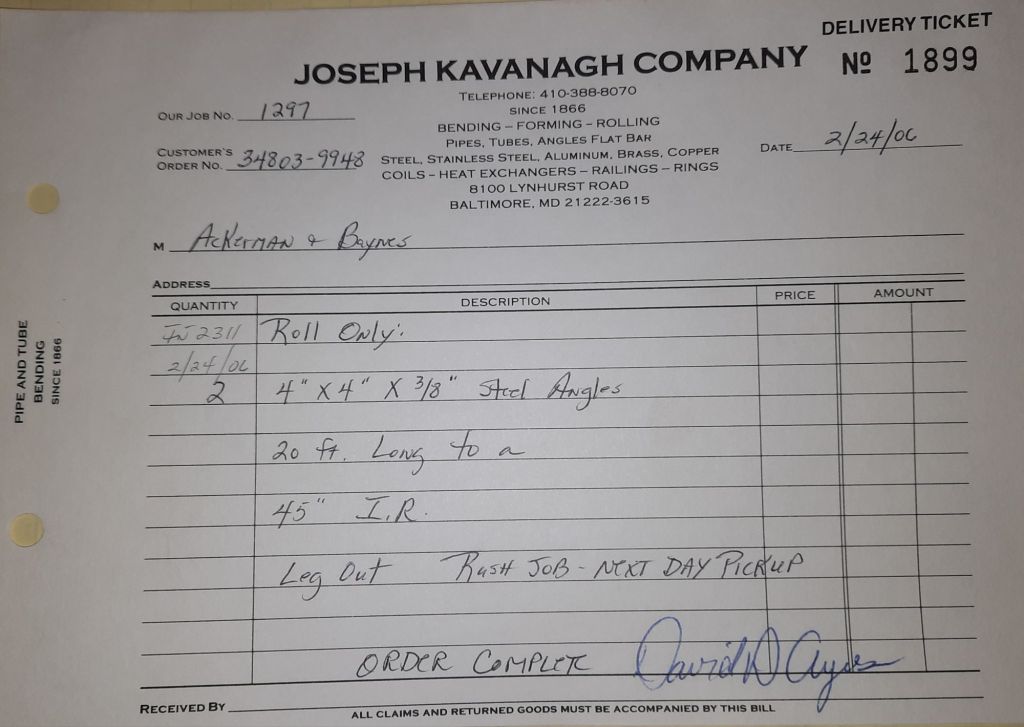 DELIVERY TICKET
JOSEPH KAVANAGH COMPANY
Nº 1899
TELEPHONE: 410-388-8070
SINCE 1866
BENDING – FORMING – ROLLING
PIPES, TUBES, ANGLES FLAT BAR
STEEL, STAINLESS STEEL, ALUMINUM, BRASS, COPPER
COILS – HEAT EXCHANGERS – RAILINGS – RINGS
8100 LYNHURST ROAD
BALTIMORE, MD 21222-3615
OUR JOB NO. 1297
CUSTOMER'S
ORDER NO. 34803-9948
DATE 2/24/06
M Ackerman & Baynes
ADDRESS
QUANTITY DESCRIPTION PRICE AMOUNT
IN 2311 Roll Only:
2/24/06
2 4" X 4" X 3/8" Steel Angles
20 ft. Long to a
45" I.R.
Leg Out Rush JOB - NEXT DAY PICKUP
ORDER COMPLETE David D Ayres
RECEIVED BY
ALL CLAIMS AND RETURNED GOODS MUST BE ACCOMPANIED BY THIS BILL
PIPE AND TUBE
BENDING
SINCE 1866